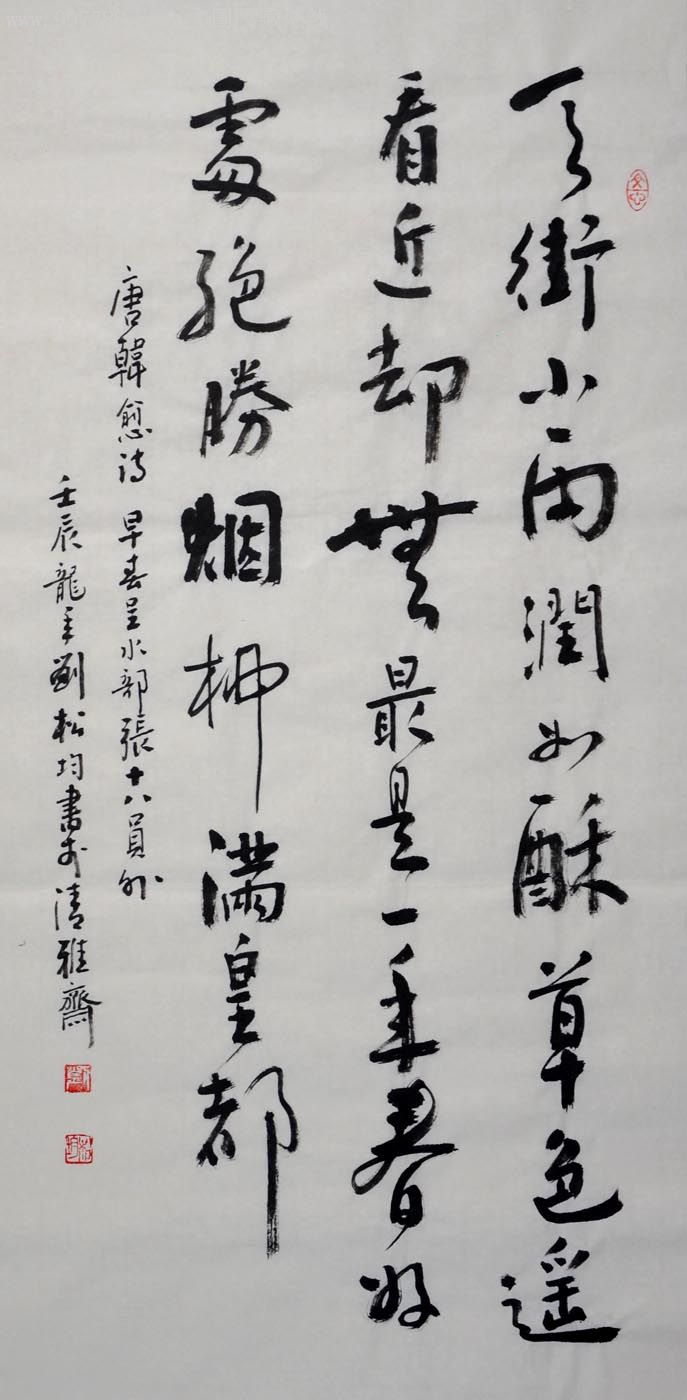 天街小雨潤如酥草色遥
看近却無最是一年春好
處絕勝烟柳滿皇都
唐韓愈詩 早春呈水部張十八員外
壬辰龍年劉松均書於清雅齋